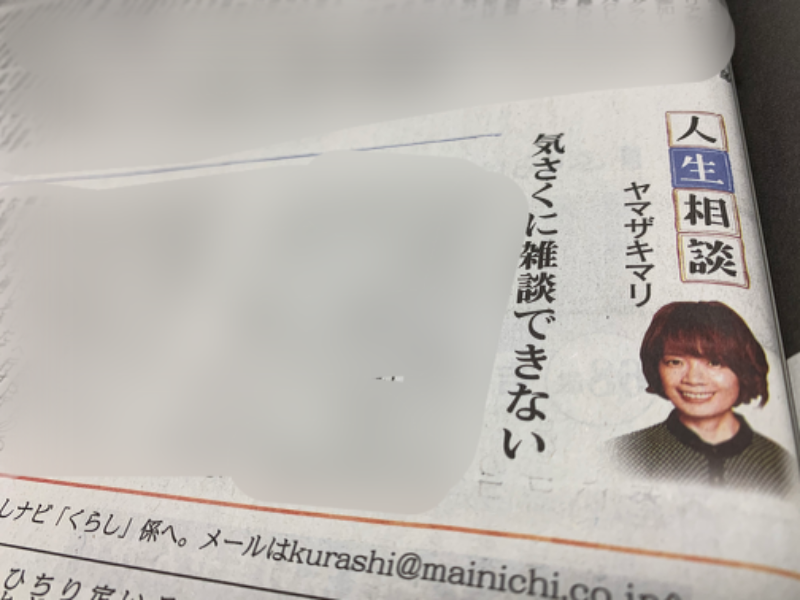 人生相談
ヤマザキマリ
気さくに雑談できない
しナビ「くらし」係へ。メールはkurashi@mainichi.co.jpへ
ひちり定い